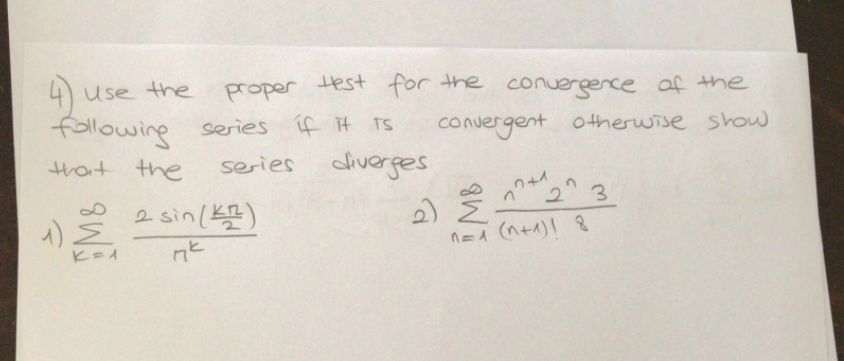 4) Use the proper test for the convergence of the
following series if it is convergent otherwise show
that the series diverges
1) ∑_{k=1}^{∞} 2 sin(kπ/2) / π^k 2) ∑_{n=1}^{∞} n^{n+1} 2^n 3 / (n+1)! 8